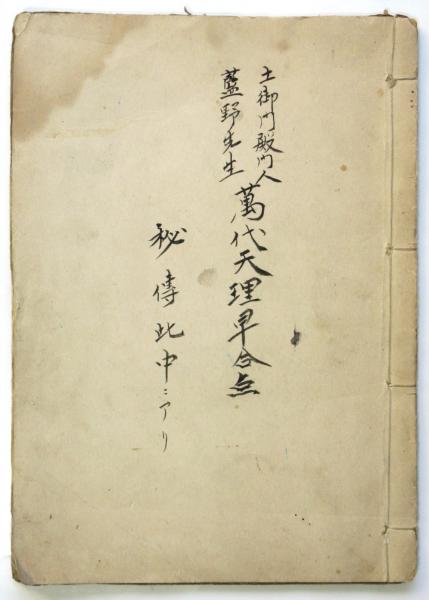 土御門殿門人
藍野先生
萬代天理早合点
秘傳此中ニアリ